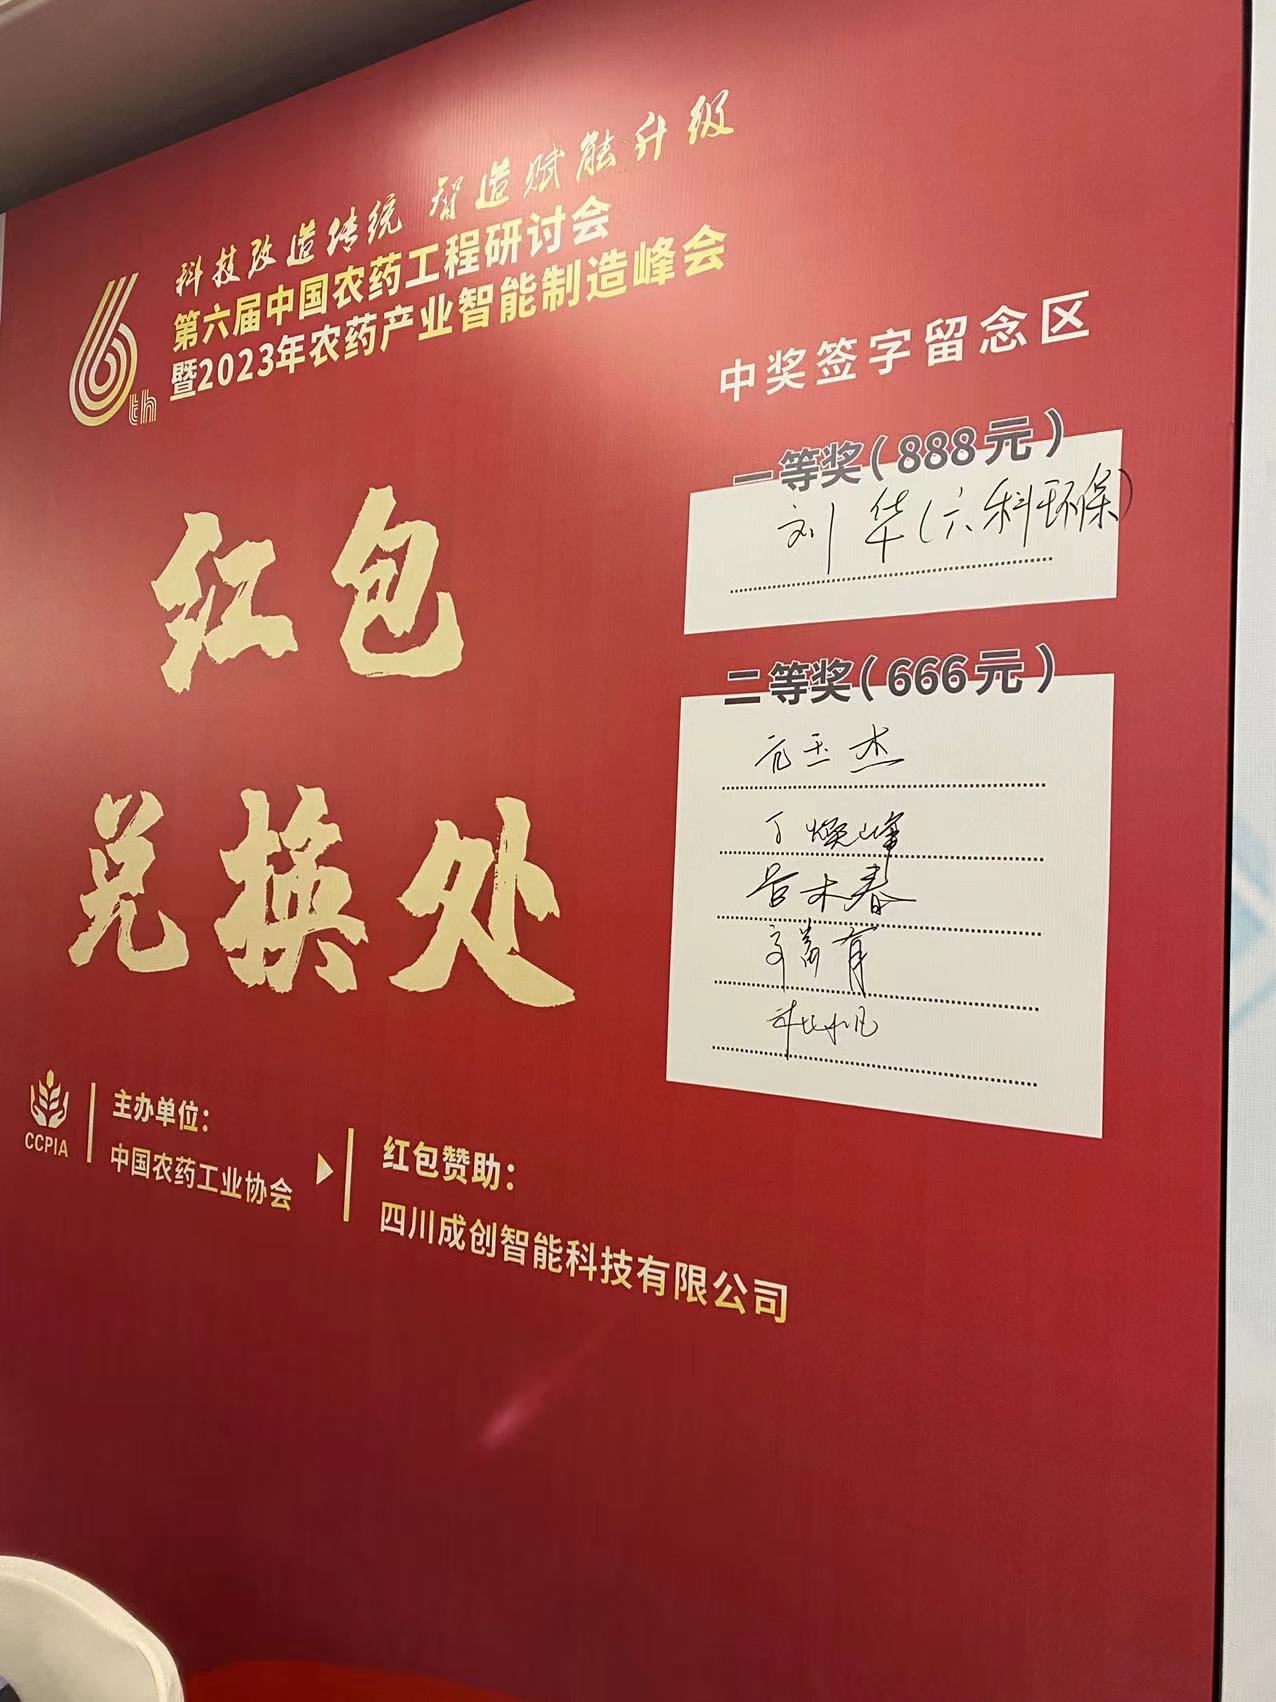 科技改造传统 智造赋能升级
第六届中国农药工程研讨会
暨2023年农药产业智能制造峰会
6th
红包
兑换处
中奖签字留念区
一等奖(888元)
刘华(六科环保)
二等奖(666元)
亓玉杰
丁焕峰
吕木春
主办单位:
中国农药工业协会
CCPIA
红包赞助:
四川成创智能科技有限公司